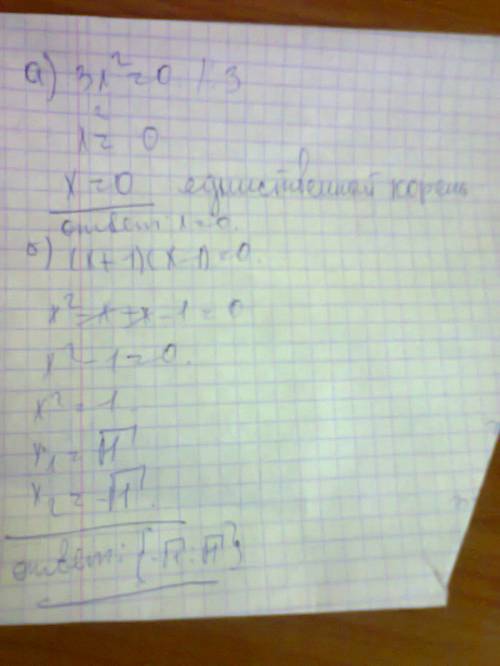 а) 3x² = 0 / 3
x² = 0
x = 0 единственный корень
ответ: x = 0.
б) (x + 1)(x - 1) = 0.
x² - x + x - 1 = 0
x² - 1 = 0.
x² = 1
x₁ = √1
x₂ = -√1.
ответ: {-√1; √1}